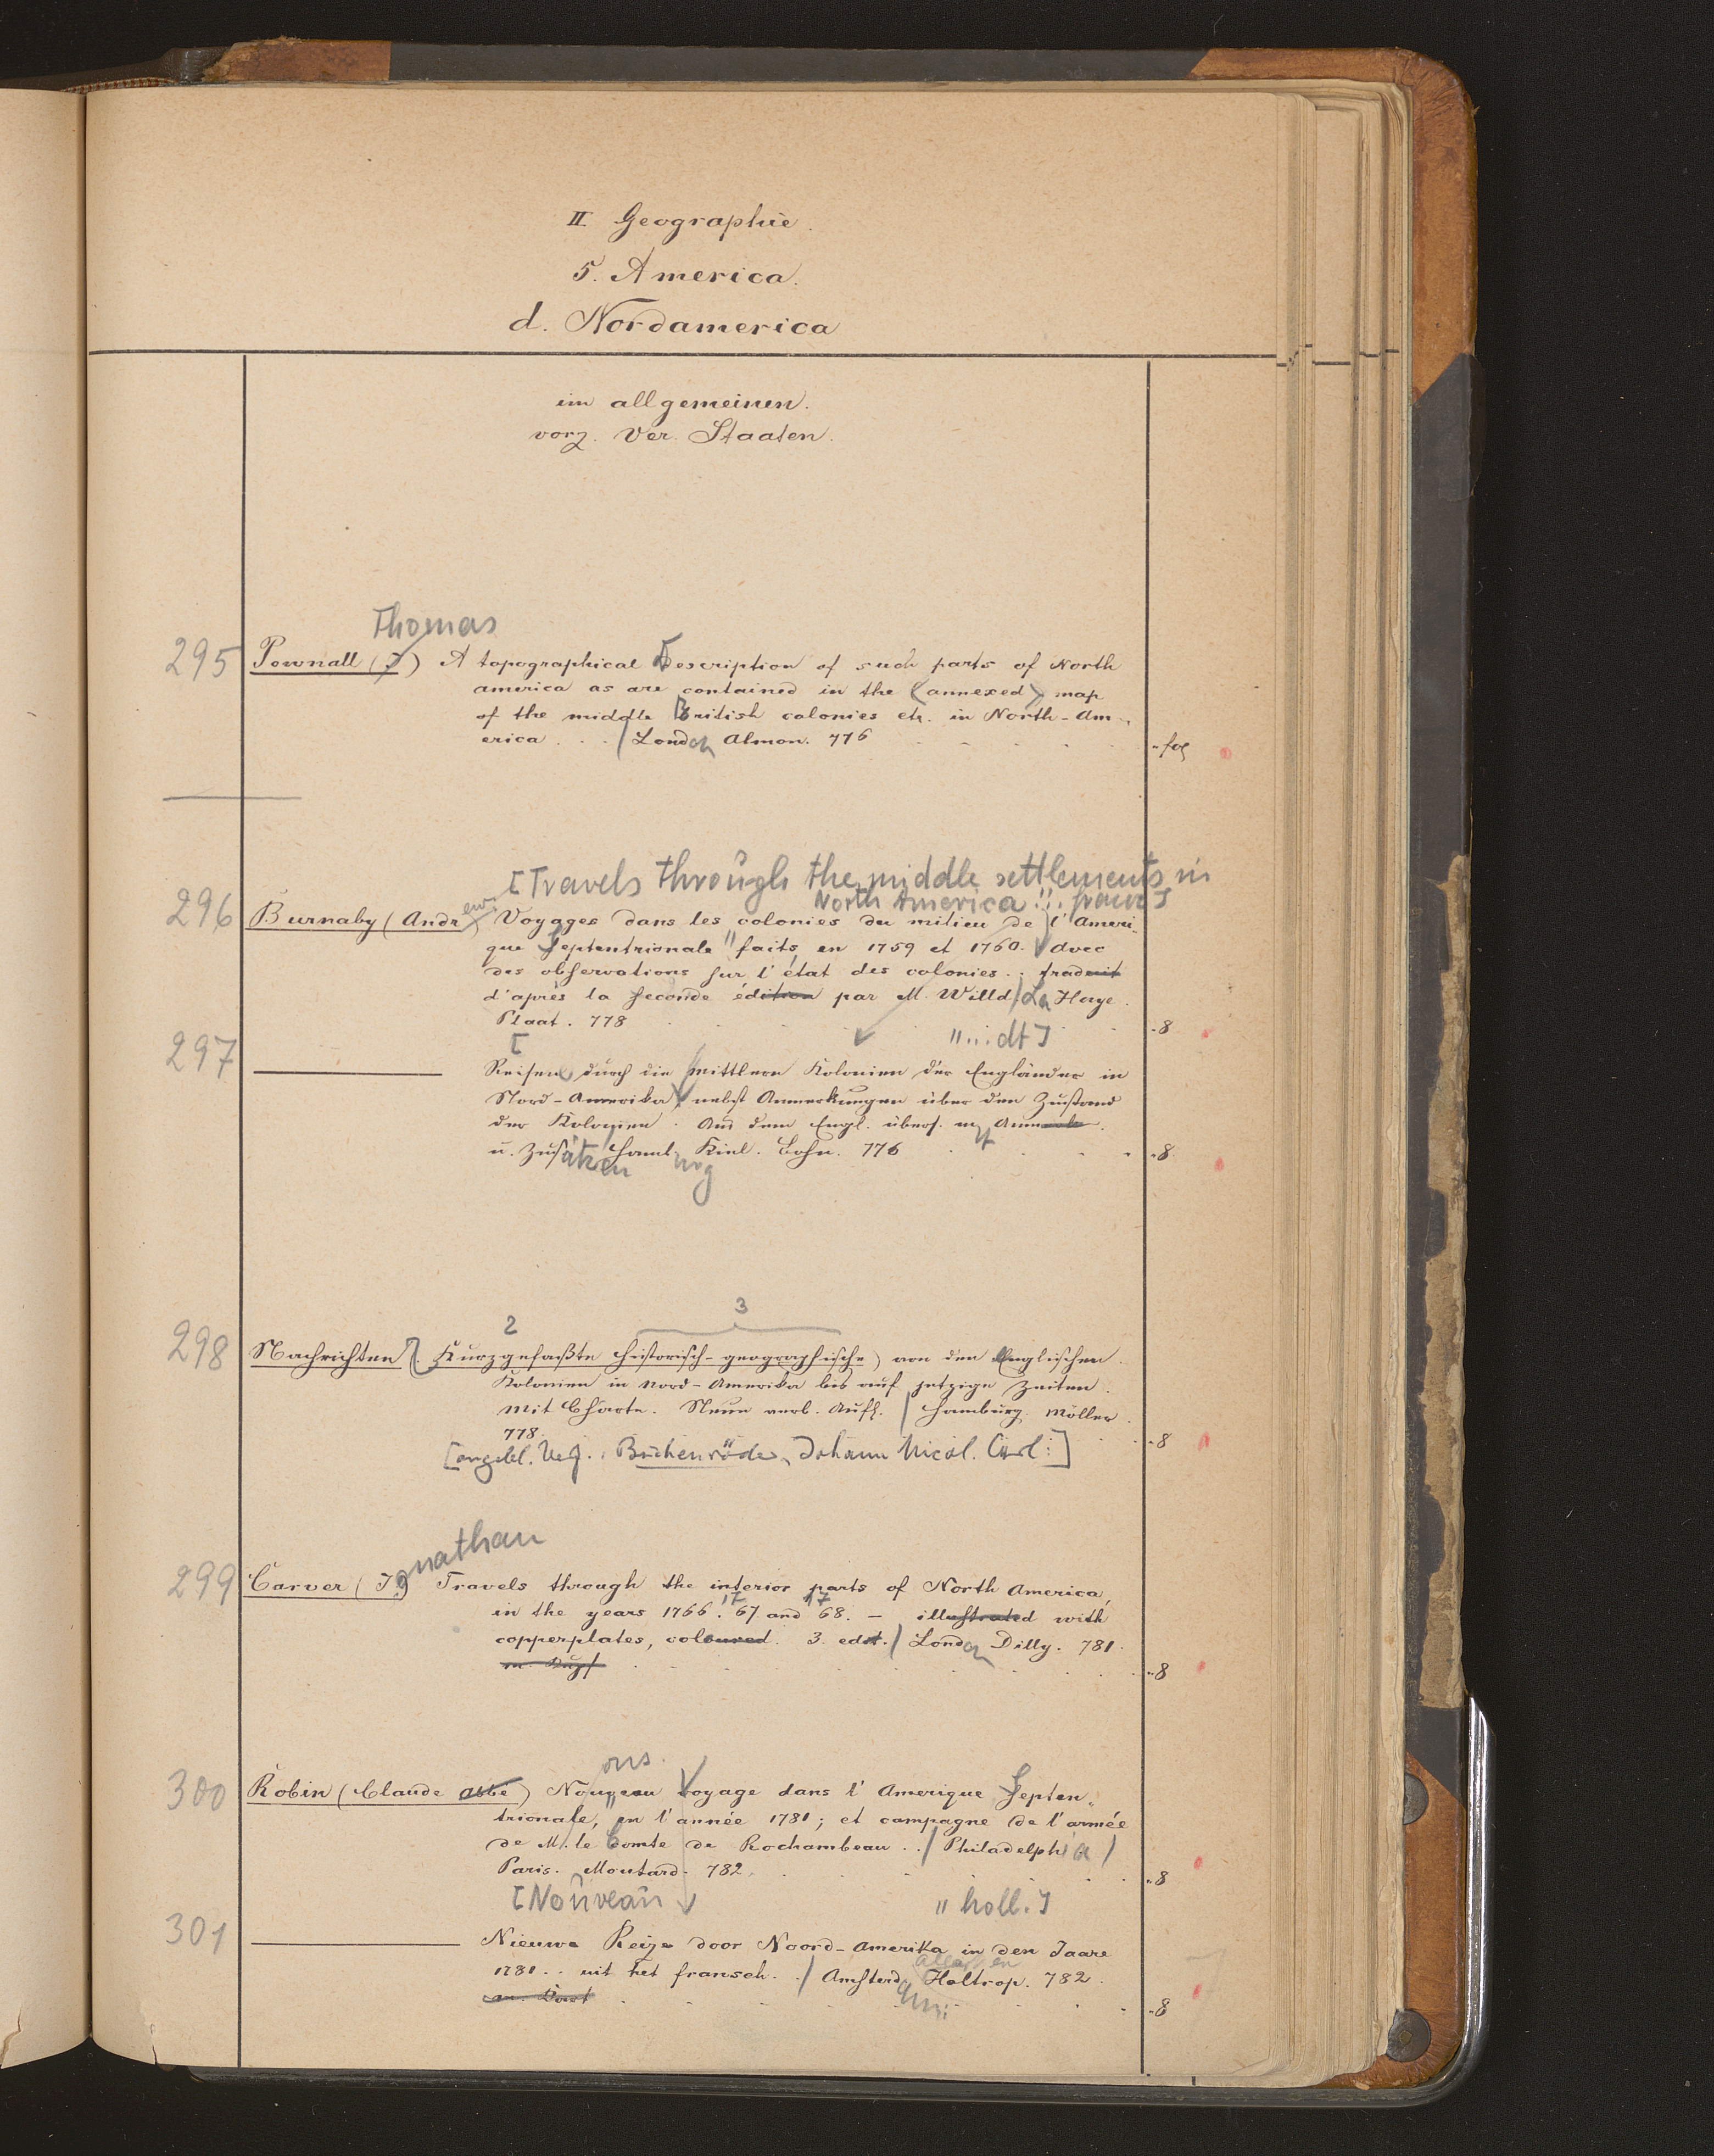 II Geographie.
5. America.
d. Nordamerica
im allgemeinen.
vorz. Ver. Staaten.
Thomas
295 Pownall (T) A topographical Description of such parts of North
america as are contained in the (annexed) map
of the middle British colonies etc. in North-Am-
erica . . . / London Almon. 776
fol
[Travels through the middle settlements in
North America ... franz]
296 Burnaby (Andrew Voyages dans les colonies du milieu de l'Ameri-
que septentrionale faits en 1759 et 1760. avec
des observations sur l'état des colonies . . traduit
d'après la seconde édition par M. Wild / La Haye.
Plaat. 778
8
[ " ... dt]
297 Reisen durch die mittlern Kolonien der Engländer in
Nord-Amerika, nebst Anmerkungen über den Zustand
der Kolonien. Aus dem Engl. übers. m Anmerk.
u. Zusätzen Hamburg Kiel. Bohn. 776
8
2 3
298 Nachrichten, Kurzgefaßte historisch-geographische) von den Englischen
Kolonien in Nord-Amerika bis auf jetzige Zeiten.
Mit Charte. Neue verb. Aufl. / Hamburg. Möller.
778.
8
[angebl. Verf.: Buchenröder, Johann Nicol. Carl:]
299 Carver (Jonathan Travels through the interior parts of North America,
17 17
in the years 1766. 67 and 68. – illustrated with
copperplates, coloured. 3. edit. / London Dilly. 781.
m. Kupf
8
ons.
300 Robin (Claude abbé) Nouveau voyage dans l'Amerique septen-
trionale, en l'année 1781; et campagne de l'armée
de M. le Comte de Rochambeau . . / Philadelphia /
Paris. Moutard. 782.
8
[Nouveau " holl.]
301 Nieuwe Reize door Noord-Amerika in den Jaare
1781 . . uit het fransch. . / Amsterd. Holtrop. 782.
8